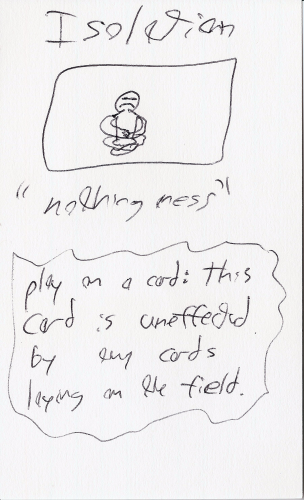 Isolation
"nothingness"
play on a card: this
card is uneffected
by any cards
laying on the field.